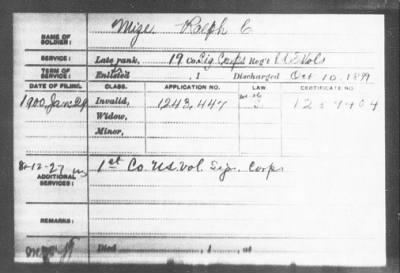 NAME OF SOLDIER: Mize Ralph C
SERVICE: Late rank, 19 Co. Sig. Corps Reg't U S Vols
TERM OF SERVICE: Enlisted , 1 Discharged Oct 10, 1899
DATE OF FILING. CLASS. APPLICATION NO. LAW CERTIFICATE NO.
1900 Jan 29 Invalid, 1243,447
Widow,
Minor,
ADDITIONAL SERVICES: 1st Co. U.S. Vol. Sig. Corps
REMARKS:
Died , 1 , at